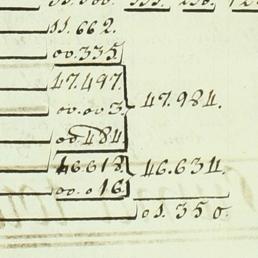 11.662.
00.335
47.497.
00.003. 47.984.
00.484
46.618. 46.634.
00.016.
01.350.